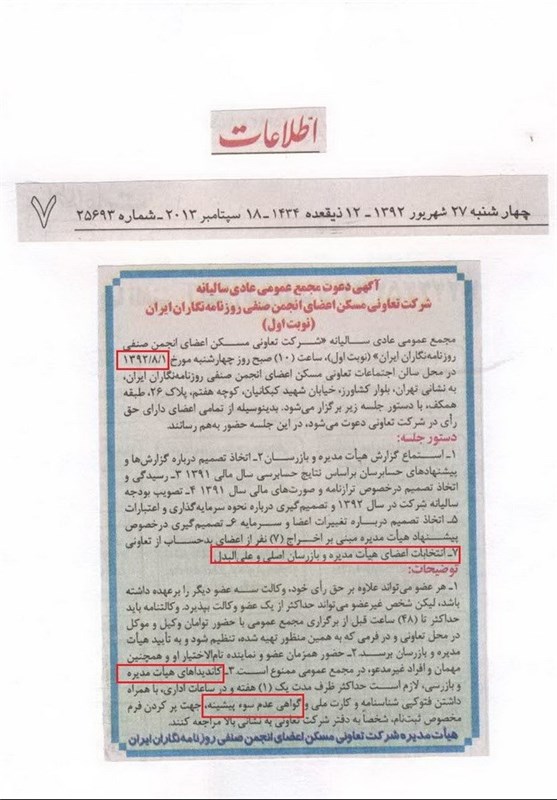 اطلاعات
چهارشنبه ۲۷ شهریور ۱۳۹۲ ـ ۱۲ ذیقعده ۱۴۳۴ ـ ۱۸ سپتامبر ۲۰۱۳ ـ شماره ۲۵۶۹۳
۷
آگهی دعوت مجمع عمومی عادی سالیانه
شرکت تعاونی مسکن اعضای انجمن صنفی روزنامه‌نگاران ایران
(نوبت اول)
مجمع عمومی عادی سالیانه «شرکت تعاونی مسکن اعضای انجمن صنفی
روزنامه‌نگاران ایران» (نوبت اول)، ساعت (۱۰) صبح روز چهارشنبه مورخ ۱۳۹۲/۸/۱
در محل سالن اجتماعات تعاونی مسکن اعضای انجمن صنفی روزنامه‌نگاران ایران،
به نشانی تهران، بلوار کشاورز، خیابان شهید کبکانیان، کوچه هفتم، پلاک ۲۶، طبقه
همکف، با دستور جلسه زیر برگزار می‌شود. بدینوسیله از تمامی اعضای دارای حق
رأی در شرکت تعاونی دعوت می‌شود، در این جلسه حضور به‌هم رسانند.
دستور جلسه:
۱ـ استماع گزارش هیأت مدیره و بازرسان ۲ـ اتخاذ تصمیم درباره گزارش‌ها و
پیشنهادهای حسابرسان براساس نتایج حسابرسی سال مالی ۱۳۹۱ ۳ـ رسیدگی و
اتخاذ تصمیم درخصوص ترازنامه و صورت‌های مالی سال ۱۳۹۱ ۴ـ تصویب بودجه
سالیانه شرکت در سال ۱۳۹۲ و تصمیم‌گیری درباره نحوه سرمایه‌گذاری و اعتبارات
۵ـ اتخاذ تصمیم درباره تغییرات اعضا و سرمایه ۶ـ تصمیم‌گیری درخصوص
پیشنهاد هیأت مدیره مبنی بر اخراج (۷) نفر از اعضای بدحساب از تعاونی
۷ـ انتخابات اعضای هیأت مدیره و بازرسان اصلی و علی‌البدل
توضیحات:
۱ـ هر عضو می‌تواند علاوه بر حق رأی خود، وکالت سه عضو دیگر را برعهده داشته
باشد، لیکن شخص غیرعضو می‌تواند حداکثر از یک عضو وکالت بپذیرد. وکالتنامه باید
حداکثر تا (۴۸) ساعت قبل از برگزاری مجمع عمومی با حضور توامان وکیل و موکل
در محل تعاونی و در فرمی که به همین منظور تهیه شده، تنظیم شود و به تأیید هیأت
مدیره و بازرسان برسد ۲ـ حضور همزمان عضو و نماینده تام‌الاختیار او و همچنین
مهمان و افراد غیرمدعو، در مجمع عمومی ممنوع است ۳ـ کاندیداهای هیأت مدیره
و بازرسی، لازم است حداکثر ظرف مدت یک (۱) هفته و در ساعات اداری، با همراه
داشتن فتوکپی شناسنامه و کارت ملی و گواهی عدم سوء پیشینه، جهت پر کردن فرم
مخصوص ثبت‌نام، شخصاً به دفتر شرکت تعاونی به نشانی بالا مراجعه کنند.
هیأت مدیره شرکت تعاونی مسکن اعضای انجمن صنفی روزنامه‌نگاران ایران